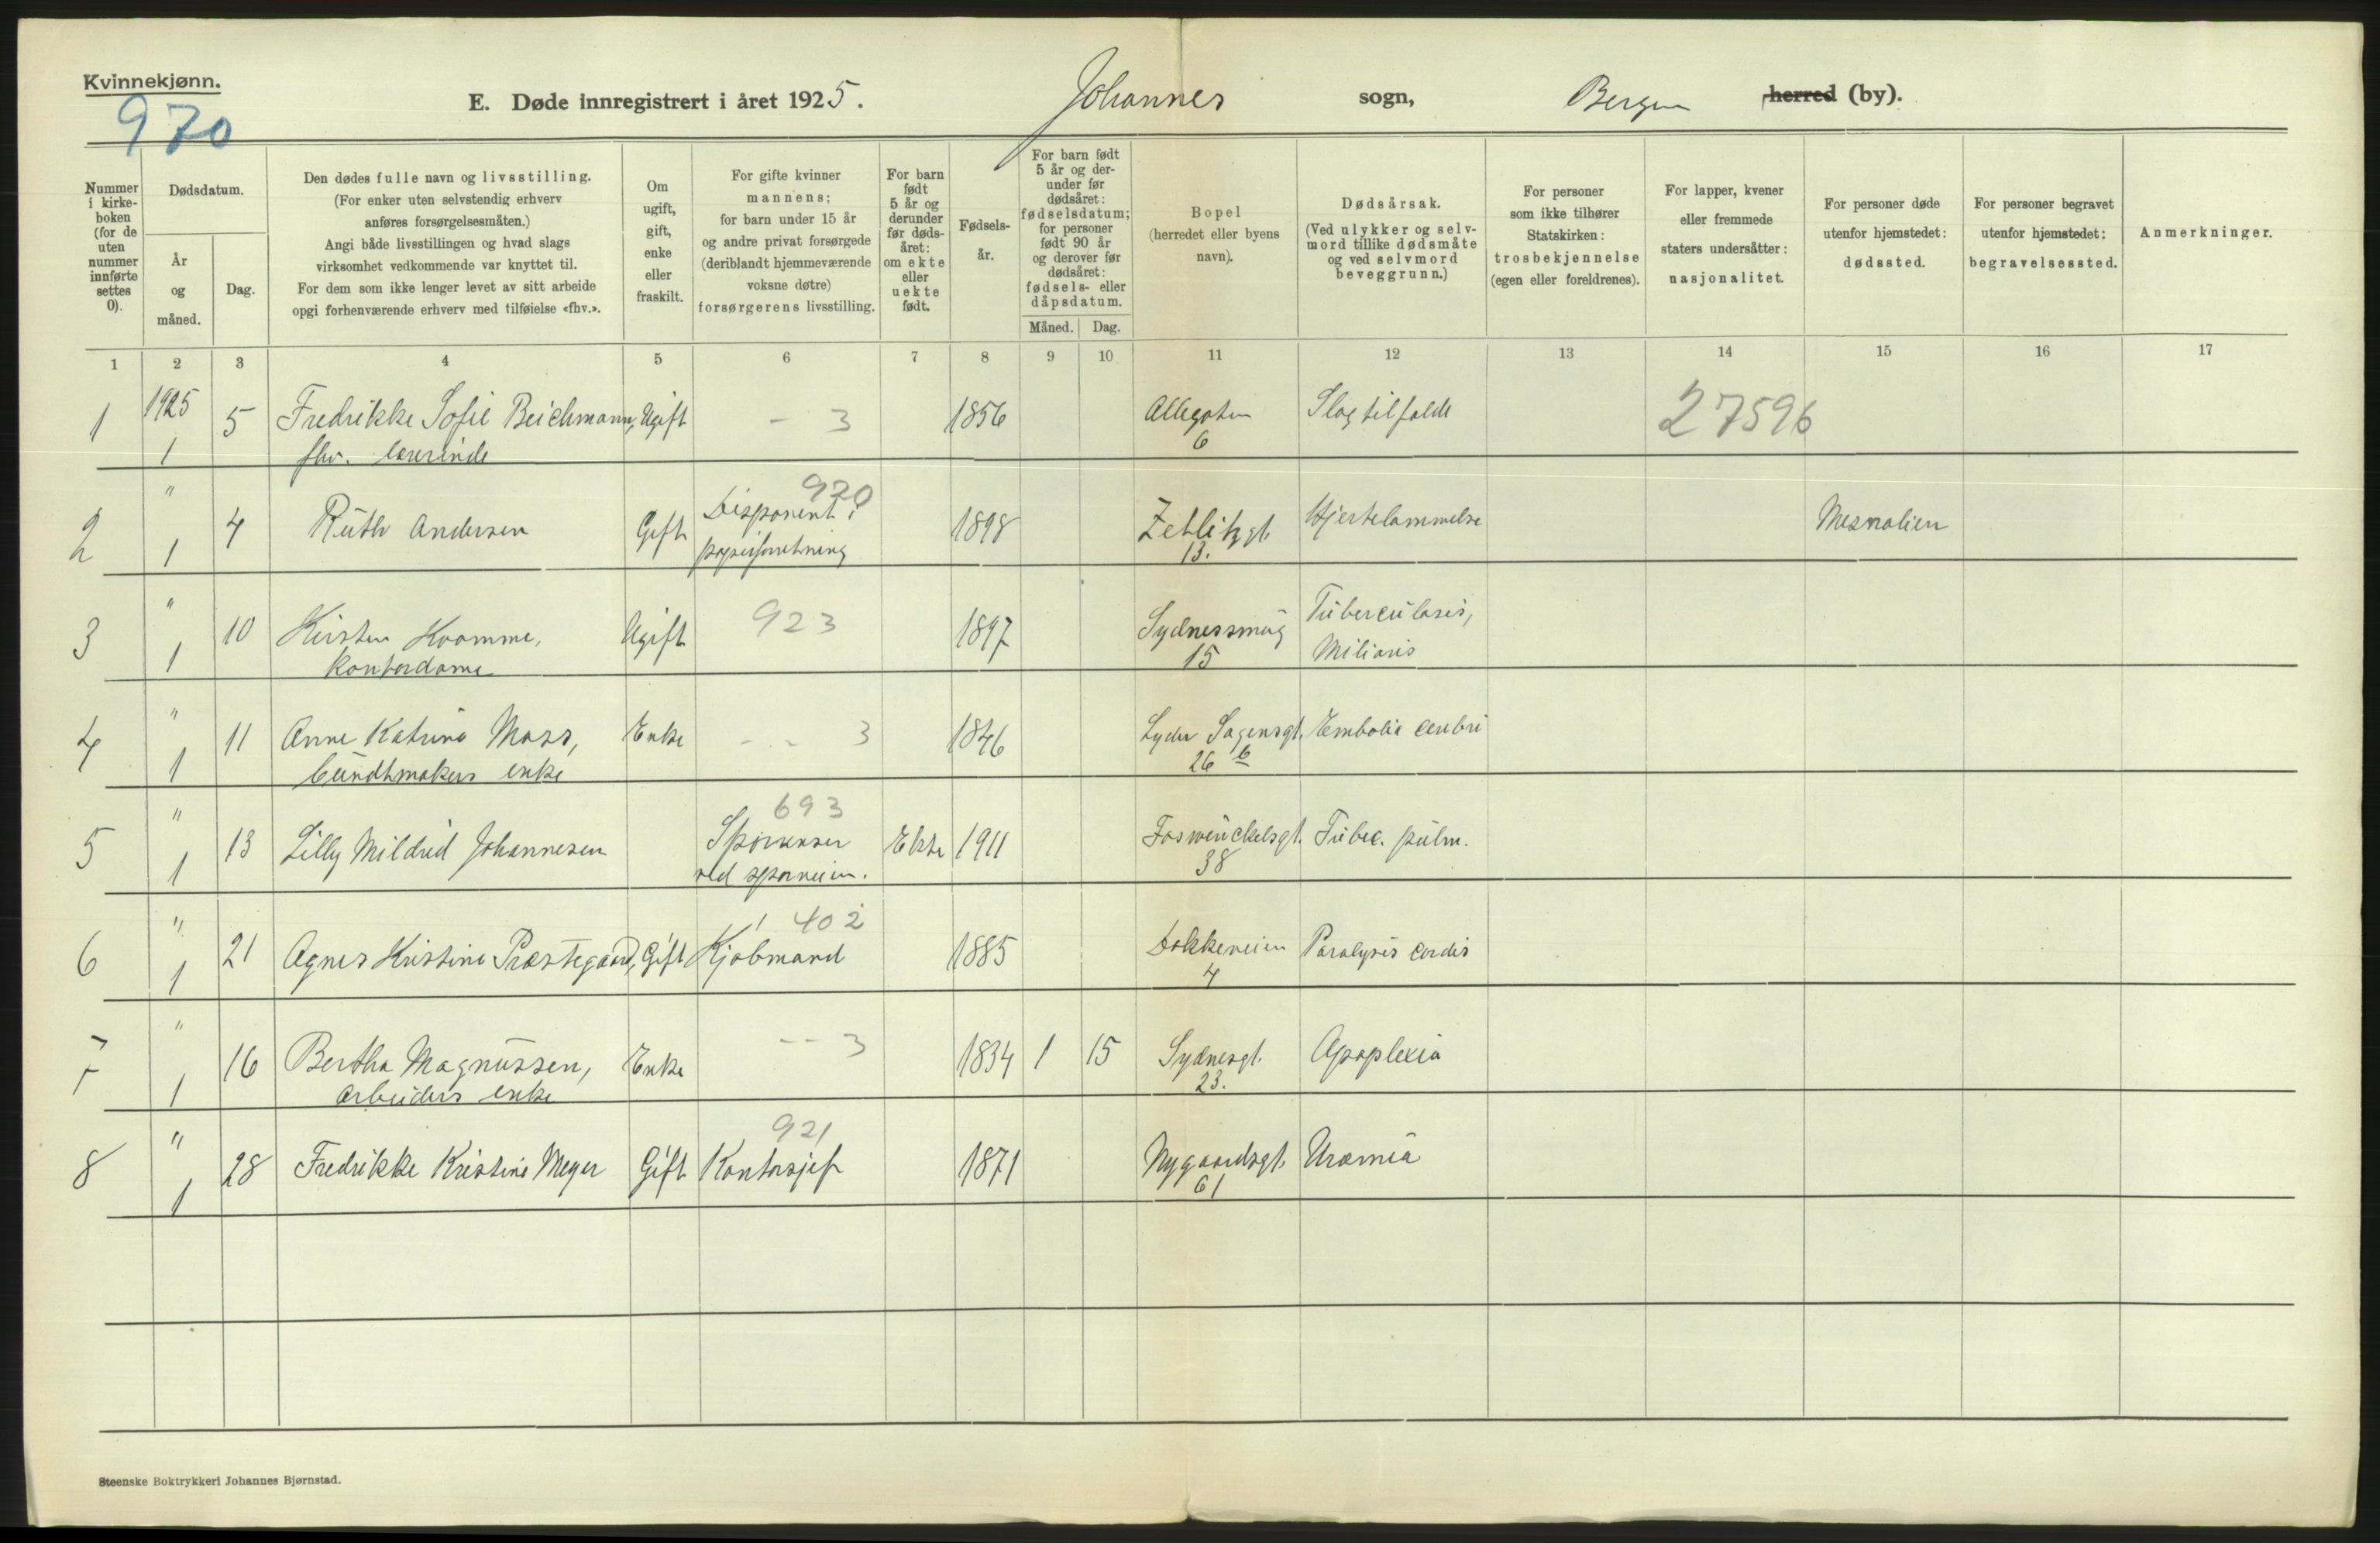 Kvinnekjønn.
970
E. Døde innregistrert i året 1925. Johannes sogn, Bergen herred (by).
Nummer i kirke-boken (for de uten nummer innførte settes 0).
Dødsdatum.
År og måned.
Dag.
Den dødes fulle navn og livsstilling.
(For enker uten selvstendig erhverv
anføres forsørgelsesmåten.)
Angi både livsstillingen og hvad slags
virksomhet vedkommende var knyttet til.
For dem som ikke lenger levet av sitt arbeide
opgi forhenværende erhverv med tilføielse «fhv.».
Om ugift, gift, enke eller fraskilt.
For gifte kvinner
mannens;
for barn under 15 år
og andre privat forsørgede
(deriblandt hjemmeværende
voksne døtre)
forsørgerens livsstilling.
For barn født 5 år og derunder før døds-året: om ekte eller uekte født.
Fødsels-år.
For barn født 5 år og der-under før dødsåret: fødselsdatum; for personer født 90 år og derover før dødsåret: fødsels- eller dåpsdatum.
Måned. Dag.
Bopel
(herredet eller byens
navn).
Dødsårsak.
(Ved ulykker og selv-
mord tillike dødsmåte
og ved selvmord
beveggrunn.)
For personer
som ikke tilhører
Statskirken:
trosbekjennelse
(egen eller foreldrenes).
For lapper, kvener
eller fremmede
staters undersåtter:
nasjonalitet.
For personer døde
utenfor hjemstedet:
dødssted.
For personer begravet
utenfor hjemstedet:
begravelsessted.
Anmerkninger.
1 2 3 4 5 6 7 8 9 10 11 12 13 14 15 16 17
1 1925 5 Fredrikke Sofie Beichmann, Ugift – 3 1856 Allegaten Slagtilfælde 27596
1 fhv. lærerinde 6
" 920
2 4 Ruth Andersen Gift Disponent i 1898 Zetlitzgt. Hjertelammelse Mesnalien
1 papirforretning 13.
"
3 10 Kirsten Kvamme, Ugift 923 1897 Sydnessmug Tuberculosis,
1 Kontordame 15 Miliaris
"
4 11 Anne Katrine Mass, Enke - - 3 1846 Lyder Sagensgt. Embolia cerebri
1 bundtmakers enke 26 b
" 693
5 13 Lilly Mildrid Johannesen Ekte 1911 Foswinckelsgt. Tuberc. pulm.
1 ved sporveien. 38
" 402
6 21 Agnes Kristine Præstegaard, Gift Kjøbmand 1885 Dokkeveien Paralysis cordis
1 4
"
7 16 Bertha Magnussen, Enke - - 3 1834 1 15 Sydnesgt. Apoplexia
1 arbeiders enke 23.
" 921
8 28 Fredrikke Kristine Meyer Gift Kontorsjef 1871 Nygaardsgt. Uræmia
1 61
Steenske Boktrykkeri Johannes Bjørnstad.